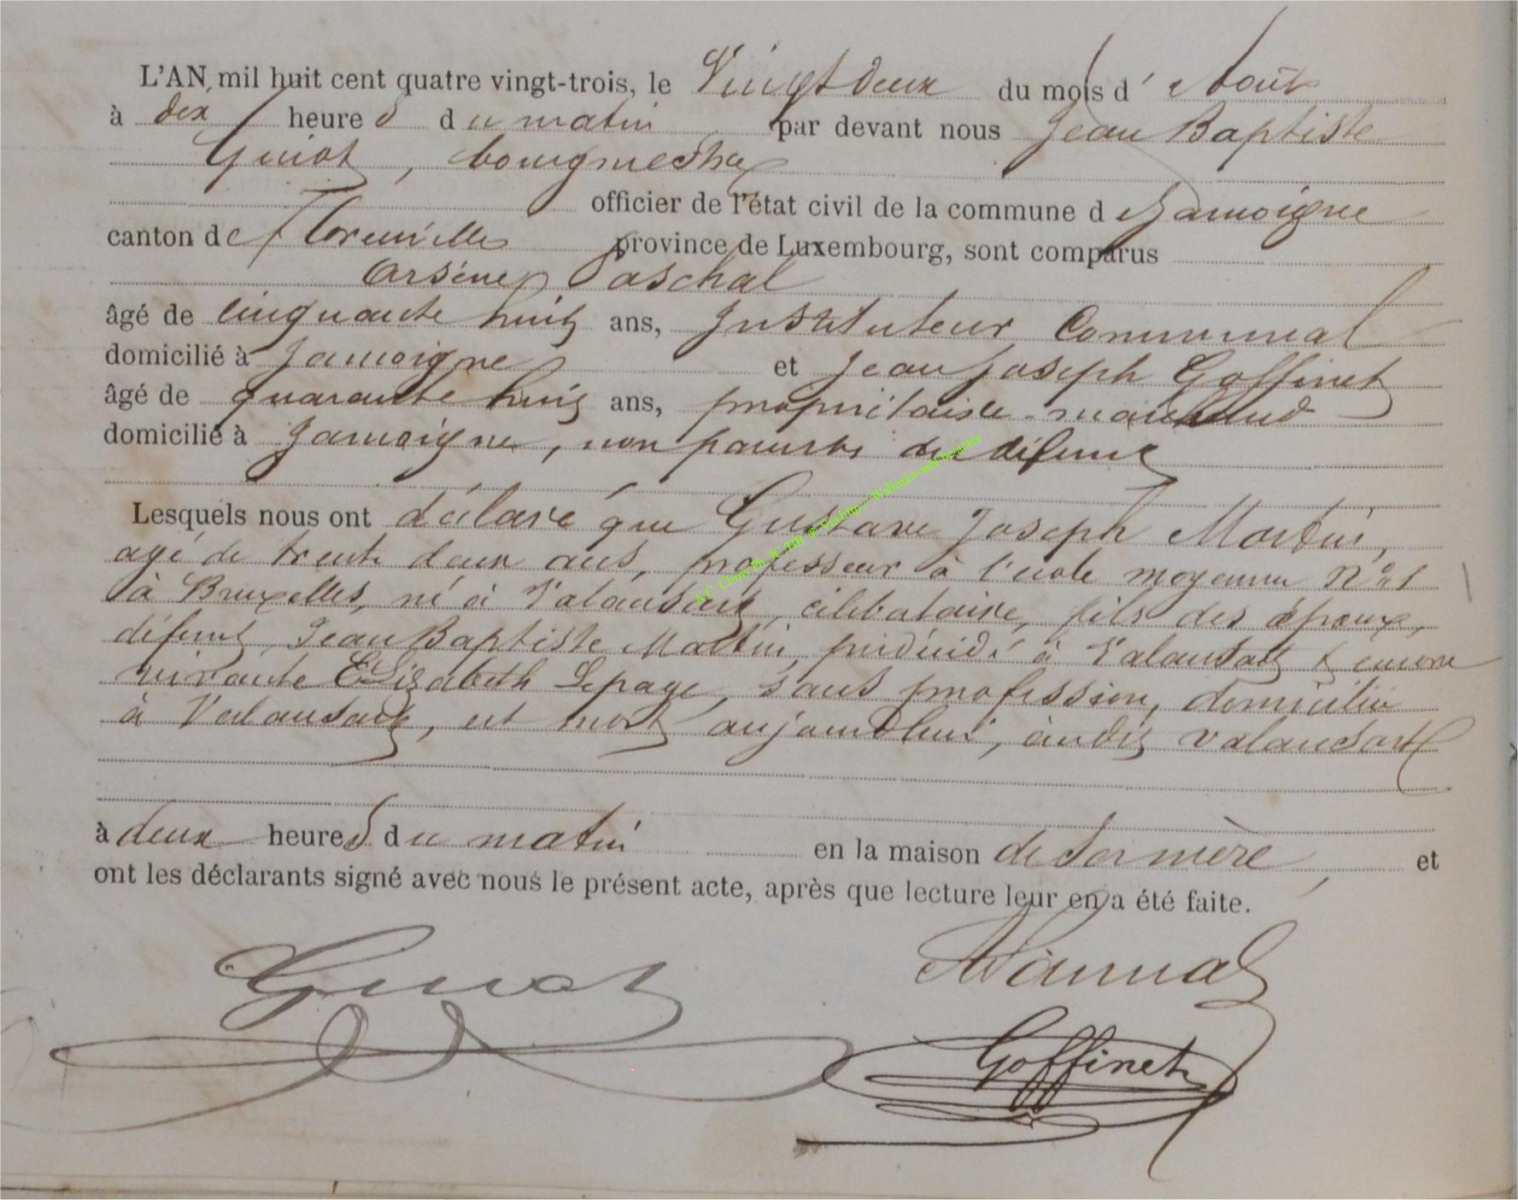 L'AN mil huit cent quatre vingt-trois, le Vingt deux du mois d'Août
à dix heures du matin par devant nous Jean Baptiste
Guiot, bourgmestre
officier de l'état civil de la commune de Jamoigne
canton de Florenville province de Luxembourg, sont comparus
Arsène Paschal
âgé de cinquante huit ans, Instituteur Communal
domicilié à Jamoigne et Jean Joseph Goffinet
âgé de quarante huit ans, propriétaire marchand
domicilié à Jamoigne, non parents du défunt
Lesquels nous ont déclaré que Gustave Joseph Martin,
agé de trente deux ans, professeur à l'école moyenne N° 1
à Bruxelles, né à Valansart, célibataire, fils des époux,
défunt Jean Baptiste Martin, prédécédé à Valansart & encore
vivante Elisabeth Lepage, sans profession, domiciliée
à Valansart, est mort aujourd'hui, audit Valansart
à deux heures du matin en la maison de sa mère, et
ont les déclarants signé avec nous le présent acte, après que lecture leur en a été faite.
Guiot
Goffinet